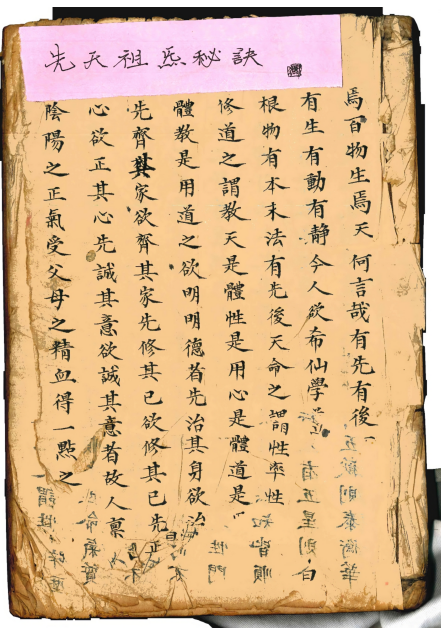 先天祖炁秘訣
焉百物生焉天何言哉有先有後
有生有動有静今人欲希仙學
根物有本末法有先後天命之謂性率性
修道之謂教天是體性是用心是體道是
體教是用道之欲明明德者先治其身欲治
先齊其家欲齊其家先修其已欲修其已先正
心欲正其心先誠其意欲誠其意者故人禀
陰陽之正氣受父母之精血得一點之